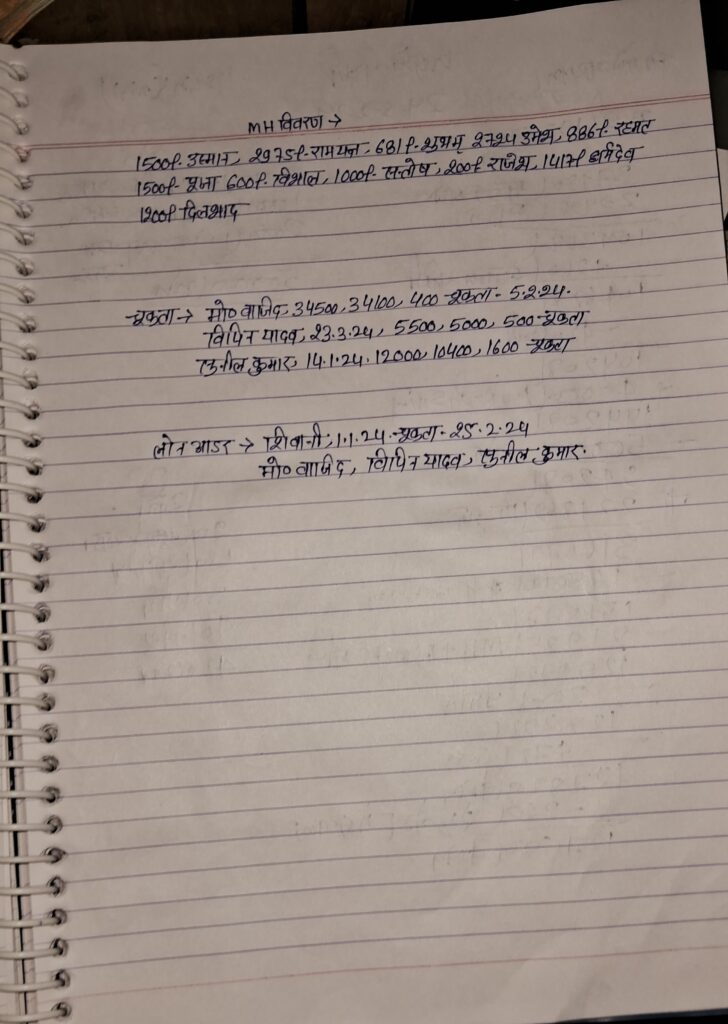 MH विवरण →
1500/- उस्मान, 2975/- रामयज्ञ, 681/- शुभम्, 2724 उमेश, 886/- रहमत
1500/- पूजा 600/- विशाल, 1000/- सन्तोष, 200/- राजेश, 1417/- धर्मदेव
1200/- दिलशाद
चुकता → मो० वाजिद, 34500, 34100, 400 चुकता - 5.2.24.
विपिन यादव, 23.3.24, 5500, 5000, 500 चुकता
सुनील कुमार, 14.1.24. 12000, 10400, 1600 चुकता
लोन आडर → शिवानी, 1.1.24 चुकता - 25.2.24
मो० वाजिद, विपिन यादव, सुनील कुमार.